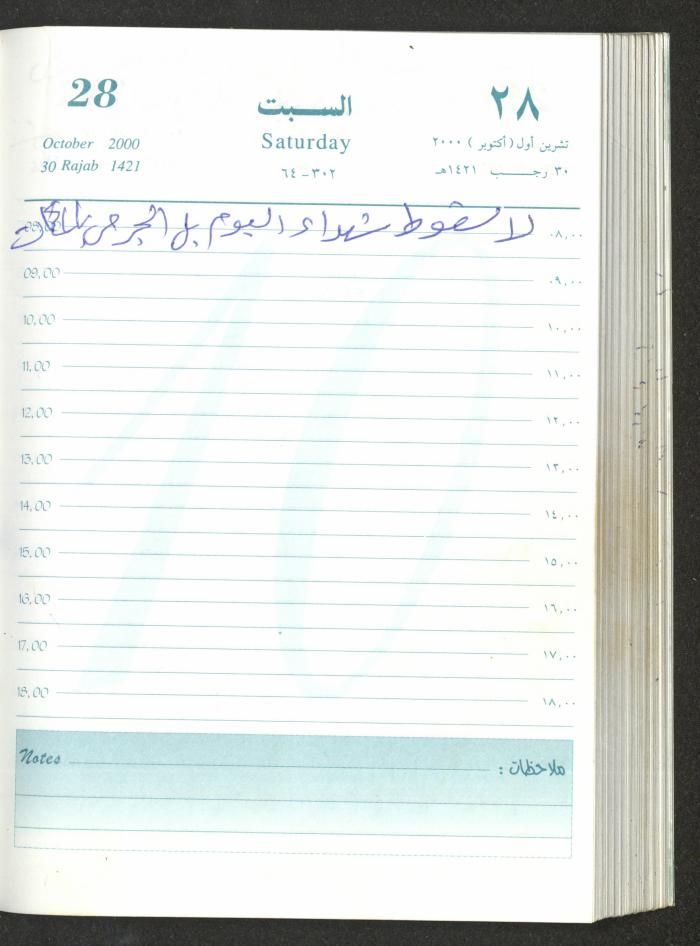 28 السبت ٢٨
October 2000 Saturday تشرين أول (أكتوبر) ٢٠٠٠
30 Rajab 1421 ٣٠٢-٦٤ ٣٠ رجب ١٤٢١هـ
لا سقوط شهداء اليوم بل الجرحى
08,00 ٠٨,٠٠
09,00 ٠٩,٠٠
10,00 ١٠,٠٠
11,00 ١١,٠٠
12,00 ١٢,٠٠
13,00 ١٣,٠٠
14,00 ١٤,٠٠
15,00 ١٥,٠٠
16,00 ١٦,٠٠
17,00 ١٧,٠٠
18,00 ١٨,٠٠
Notes ملاحظات :